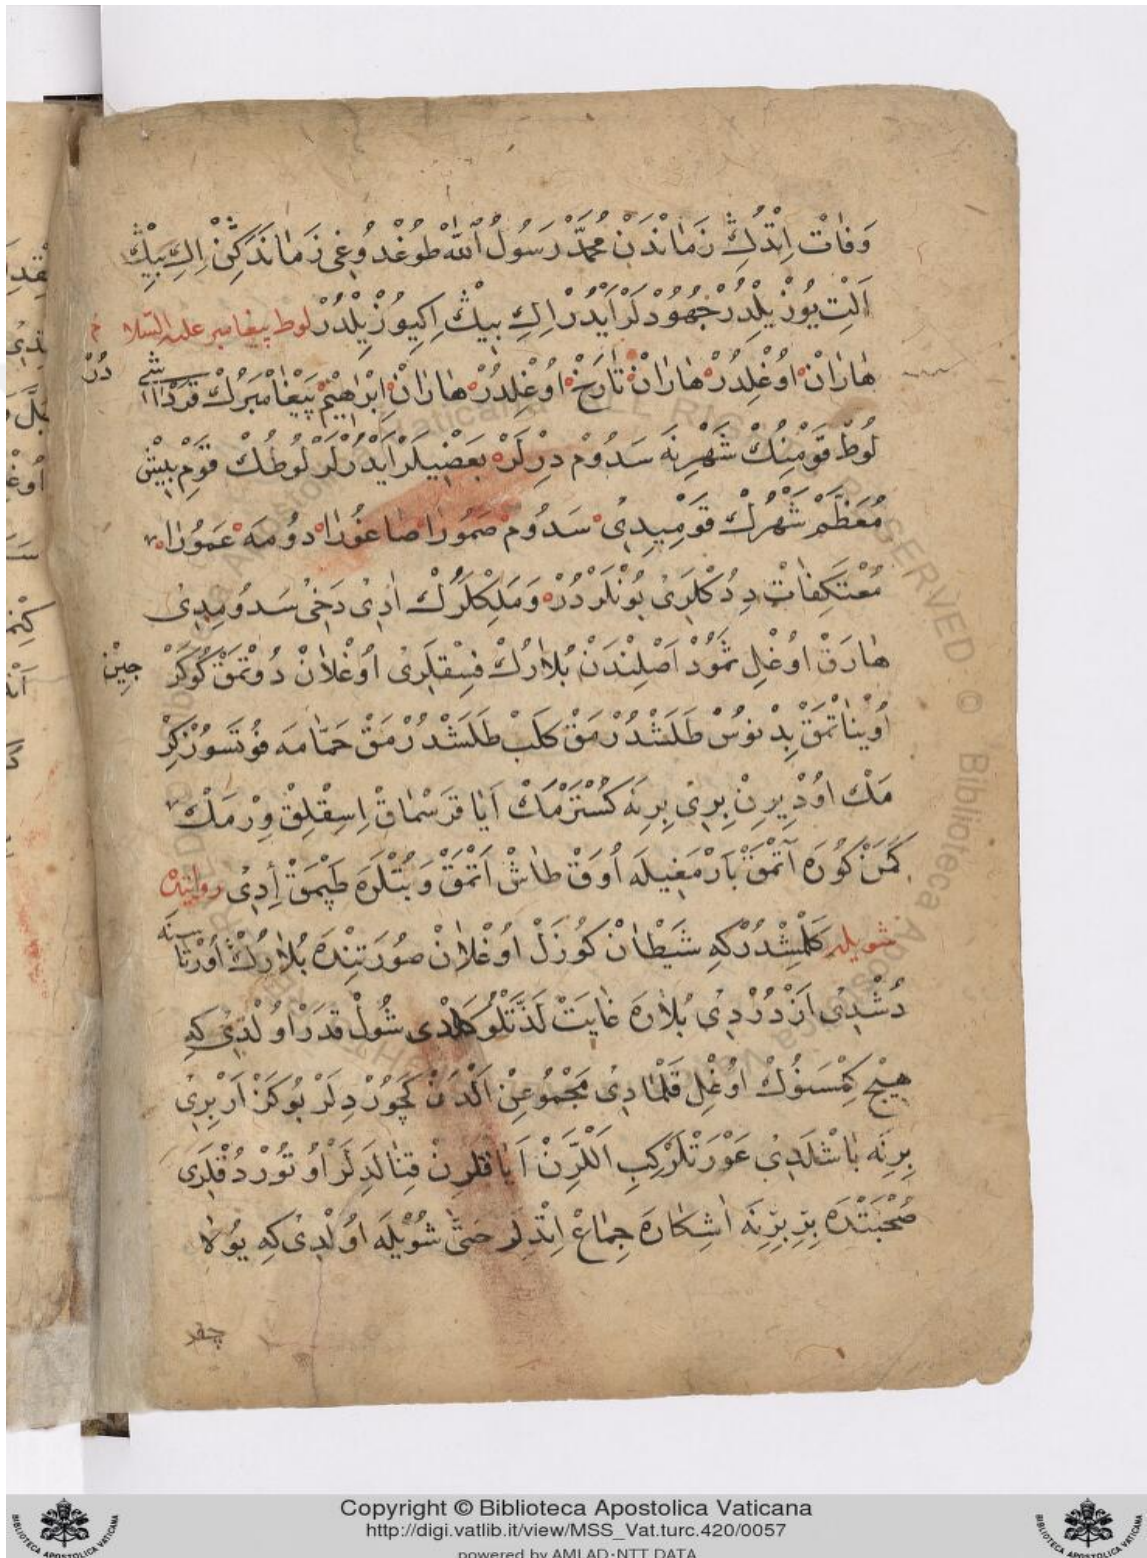 وَفَاتْ اِتْدُكِ زَمَانْدَنْ مُحَمَّدْ رَسُولُ ٱللّٰهْ طُوغْدُوغِى زَمَانَدَكِنْ اِكِ بِيْڭْ
اَلْتِ يُوزْ يِلْدُرْ جُهُودْلَرْ اَيْدُرْ اِكِ بِيْڭْ اِكِيُوزْ يِلْدُرْ لوط پيغامبر عليه السلام
هَارَانْ اوُغْلِدُرْ هَارَانْ تَارَخْ اوُغْلِدُرْ هَارَانْ اِبْرَاهِيمْ پَيْغَامْبَرُكْ قَرْدَاشِى دُرْ
لُوطْ قَوْمِنُكْ شَهْرِنَه سَدُومْ دِرْلَرْ بَعْضِيلَرْ اَيْدُرْلَرْ لُوطُكْ قَوْمِ بِيشْ
مُعَظَّمْ شَهْرُكْ قَوْمِيدِى سَدُومْ صَمُورَا صَاعُورَا دُومَه عَمُورَا
مُعْتَكِفَاتْ دِدُكْلَرِى بُونْلَرْدُرْ وَمَلِكْلَرُكْ ادِى دَخِى سَدُومِيدِى
هَارَقْ اوُغْلِ ثَمُودْ اَصْلِنْدَنْ بُلَارُكْ فِسْقلَرِى اُوغْلَانْ دُوتْمَقْ كُوكَرْجِينْ
اُوينَاتْمَقْ بِدْ نوُسْ طَلَشْدُرْمَقْ كَلَبْ طَلَشْدُرْمَقْ حَمَّامَه فُوتَسُوزْ كِرْ
مَكْ اوُدْ يِرِنْ بِرِى بِرِنَه كُسْتَرْمَكْ اَيَا قَرَسْمَاقْ اِسِقْلِقْ وِرْمَكْ
كَمَنْ كُورَه آتْمَقْ بَارْمَغِيلَه اُوَقْ طَاشْ اَتْمَقْ وَبُتْلَرَه طَپْمَقْ اِدِى روايتده
شويله كَلْمِشْدُرْكِه شَيْطَانْ كُوزَلْ اوُغْلَانْ صُورَتِنْدَه بُلَارُكْ اَوْرْتَاسِنَه
دُشْدِى اَزْدُرْدِى بُلَارَه غَايَتْ لَذَّتْلُو كَلْدِى شُولْ قَدَرْ اوُلْدِى كِه
هِيچْ كِمْسَنُوكْ اوُغْلِ قَلْمَادِى مَجْمُوعِنْ اَلْدَنْ كَچُورْدِلَرْ بُوكَزْ اَرْ بِرِى
بِرِنَه بَاشْلَدِى عَوْرَتْلَرْكِبِ اَللَّرِنْ اَيَاقْلَرِنْ قِنَالَدِلَرْ اوُتُورْدُقْلَرِى
صُحْبَتْدَه بِرْبِرِنَه اَشِكَارَه جِمَاعْ اِتْدِلَرْ حَتَّى شُويْلَه اوُلْدِى كِه يُولَا
Copyright © Biblioteca Apostolica Vaticana
http://digi.vatlib.it/view/MSS_Vat.turc.420/0057
powered by AMLAD·NTT DATA